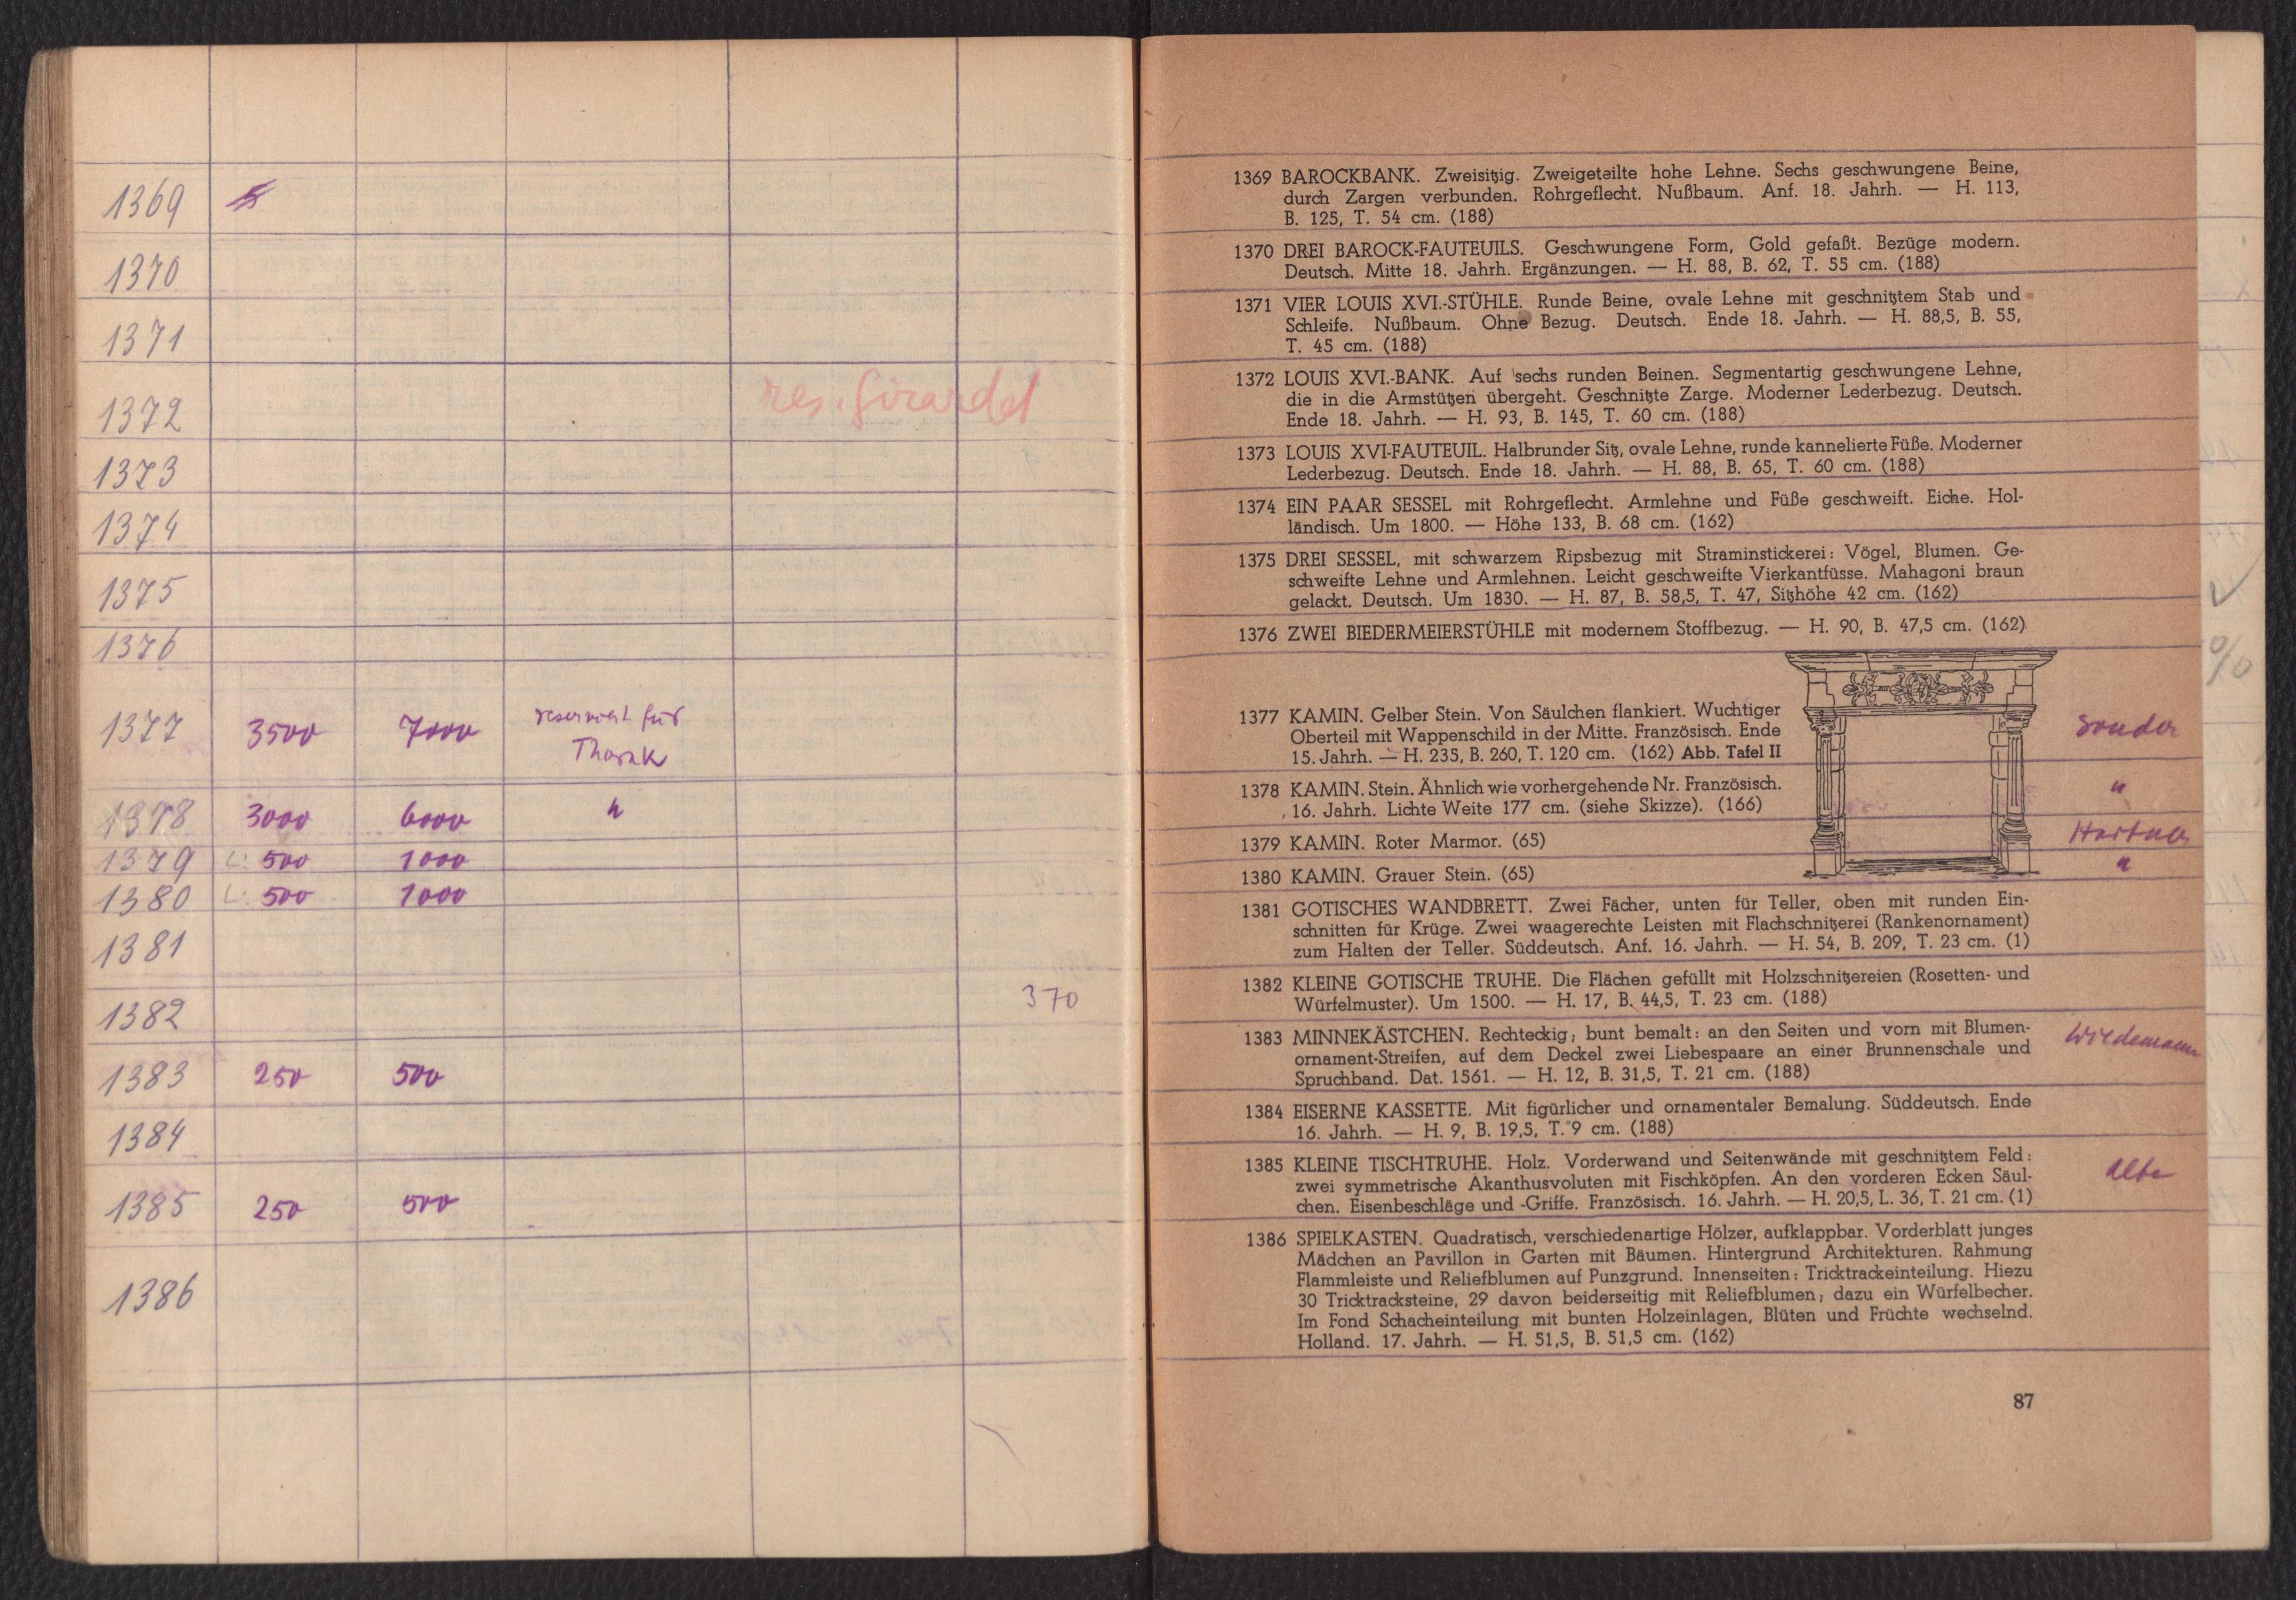 1369
1370
1371
1372 res. Girardet
1373
1374
1375
1376
1377 3500 7000 reserviert für
Thorak
1378 3000 6000 "
1379 L: 500 1000
1380 L: 500 1000
1381
1382 370
1383 250 500
1384
1385 250 500
1386
1369 BAROCKBANK. Zweisitzig. Zweigeteilte hohe Lehne. Sechs geschwungene Beine,
durch Zargen verbunden. Rohrgeflecht. Nußbaum. Anf. 18. Jahrh. — H. 113,
B. 125, T. 54 cm. (188)
1370 DREI BAROCK-FAUTEUILS. Geschwungene Form, Gold gefaßt. Bezüge modern.
Deutsch. Mitte 18. Jahrh. Ergänzungen. — H. 88, B. 62, T. 55 cm. (188)
1371 VIER LOUIS XVI.-STÜHLE. Runde Beine, ovale Lehne mit geschnitztem Stab und
Schleife. Nußbaum. Ohne Bezug. Deutsch. Ende 18. Jahrh. — H. 88,5, B. 55,
T. 45 cm. (188)
1372 LOUIS XVI.-BANK. Auf sechs runden Beinen. Segmentartig geschwungene Lehne,
die in die Armstützen übergeht. Geschnitzte Zarge. Moderner Lederbezug. Deutsch.
Ende 18. Jahrh. — H. 93, B. 145, T. 60 cm. (188)
1373 LOUIS XVI-FAUTEUIL. Halbrunder Sitz, ovale Lehne, runde kannelierte Füße. Moderner
Lederbezug. Deutsch. Ende 18. Jahrh. — H. 88, B. 65, T. 60 cm. (188)
1374 EIN PAAR SESSEL mit Rohrgeflecht. Armlehne und Füße geschweift. Eiche. Hol-
ländisch. Um 1800. — Höhe 133, B. 68 cm. (162)
1375 DREI SESSEL, mit schwarzem Ripsbezug mit Straminstickerei: Vögel, Blumen. Ge-
schweifte Lehne und Armlehnen. Leicht geschweifte Vierkantfüsse. Mahagoni braun
gelackt. Deutsch. Um 1830. — H. 87, B. 58,5, T. 47, Sitzhöhe 42 cm. (162)
1376 ZWEI BIEDERMEIERSTÜHLE mit modernem Stoffbezug. — H. 90, B. 47,5 cm. (162)
1377 KAMIN. Gelber Stein. Von Säulchen flankiert. Wuchtiger
Oberteil mit Wappenschild in der Mitte. Französisch. Ende
15. Jahrh. — H. 235, B. 260, T. 120 cm. (162) Abb. Tafel II
Sonder
1378 KAMIN. Stein. Ähnlich wie vorhergehende Nr. Französisch.
16. Jahrh. Lichte Weite 177 cm. (siehe Skizze). (166)
"
1379 KAMIN. Roter Marmor. (65)
1380 KAMIN. Grauer Stein. (65) "
1381 GOTISCHES WANDBRETT. Zwei Fächer, unten für Teller, oben mit runden Ein-
schnitten für Krüge. Zwei waagerechte Leisten mit Flachschnitzerei (Rankenornament)
zum Halten der Teller. Süddeutsch. Anf. 16. Jahrh. — H. 54, B. 209, T. 23 cm. (1)
1382 KLEINE GOTISCHE TRUHE. Die Flächen gefüllt mit Holzschnitzereien (Rosetten- und
Würfelmuster). Um 1500. — H. 17, B. 44,5, T. 23 cm. (188)
1383 MINNEKÄSTCHEN. Rechteckig; bunt bemalt: an den Seiten und vorn mit Blumen-
ornament-Streifen, auf dem Deckel zwei Liebespaare an einer Brunnenschale und
Spruchband. Dat. 1561. — H. 12, B. 31,5, T. 21 cm. (188)
Wiedemann
1384 EISERNE KASSETTE. Mit figürlicher und ornamentaler Bemalung. Süddeutsch. Ende
16. Jahrh. — H. 9, B. 19,5, T. 9 cm. (188)
1385 KLEINE TISCHTRUHE. Holz. Vorderwand und Seitenwände mit geschnitztem Feld:
zwei symmetrische Akanthusvoluten mit Fischköpfen. An den vorderen Ecken Säul-
chen. Eisenbeschläge und -Griffe. Französisch. 16. Jahrh. — H. 20,5, L. 36, T. 21 cm. (1)
1386 SPIELKASTEN. Quadratisch, verschiedenartige Hölzer, aufklappbar. Vorderblatt junges
Mädchen an Pavillon in Garten mit Bäumen. Hintergrund Architekturen. Rahmung
Flammleiste und Reliefblumen auf Punzgrund. Innenseiten: Tricktrackeinteilung. Hiezu
30 Tricktracksteine, 29 davon beiderseitig mit Reliefblumen; dazu ein Würfelbecher.
Im Fond Schacheinteilung mit bunten Holzeinlagen, Blüten und Früchte wechselnd.
Holland. 17. Jahrh. — H. 51,5, B. 51,5 cm. (162)
87